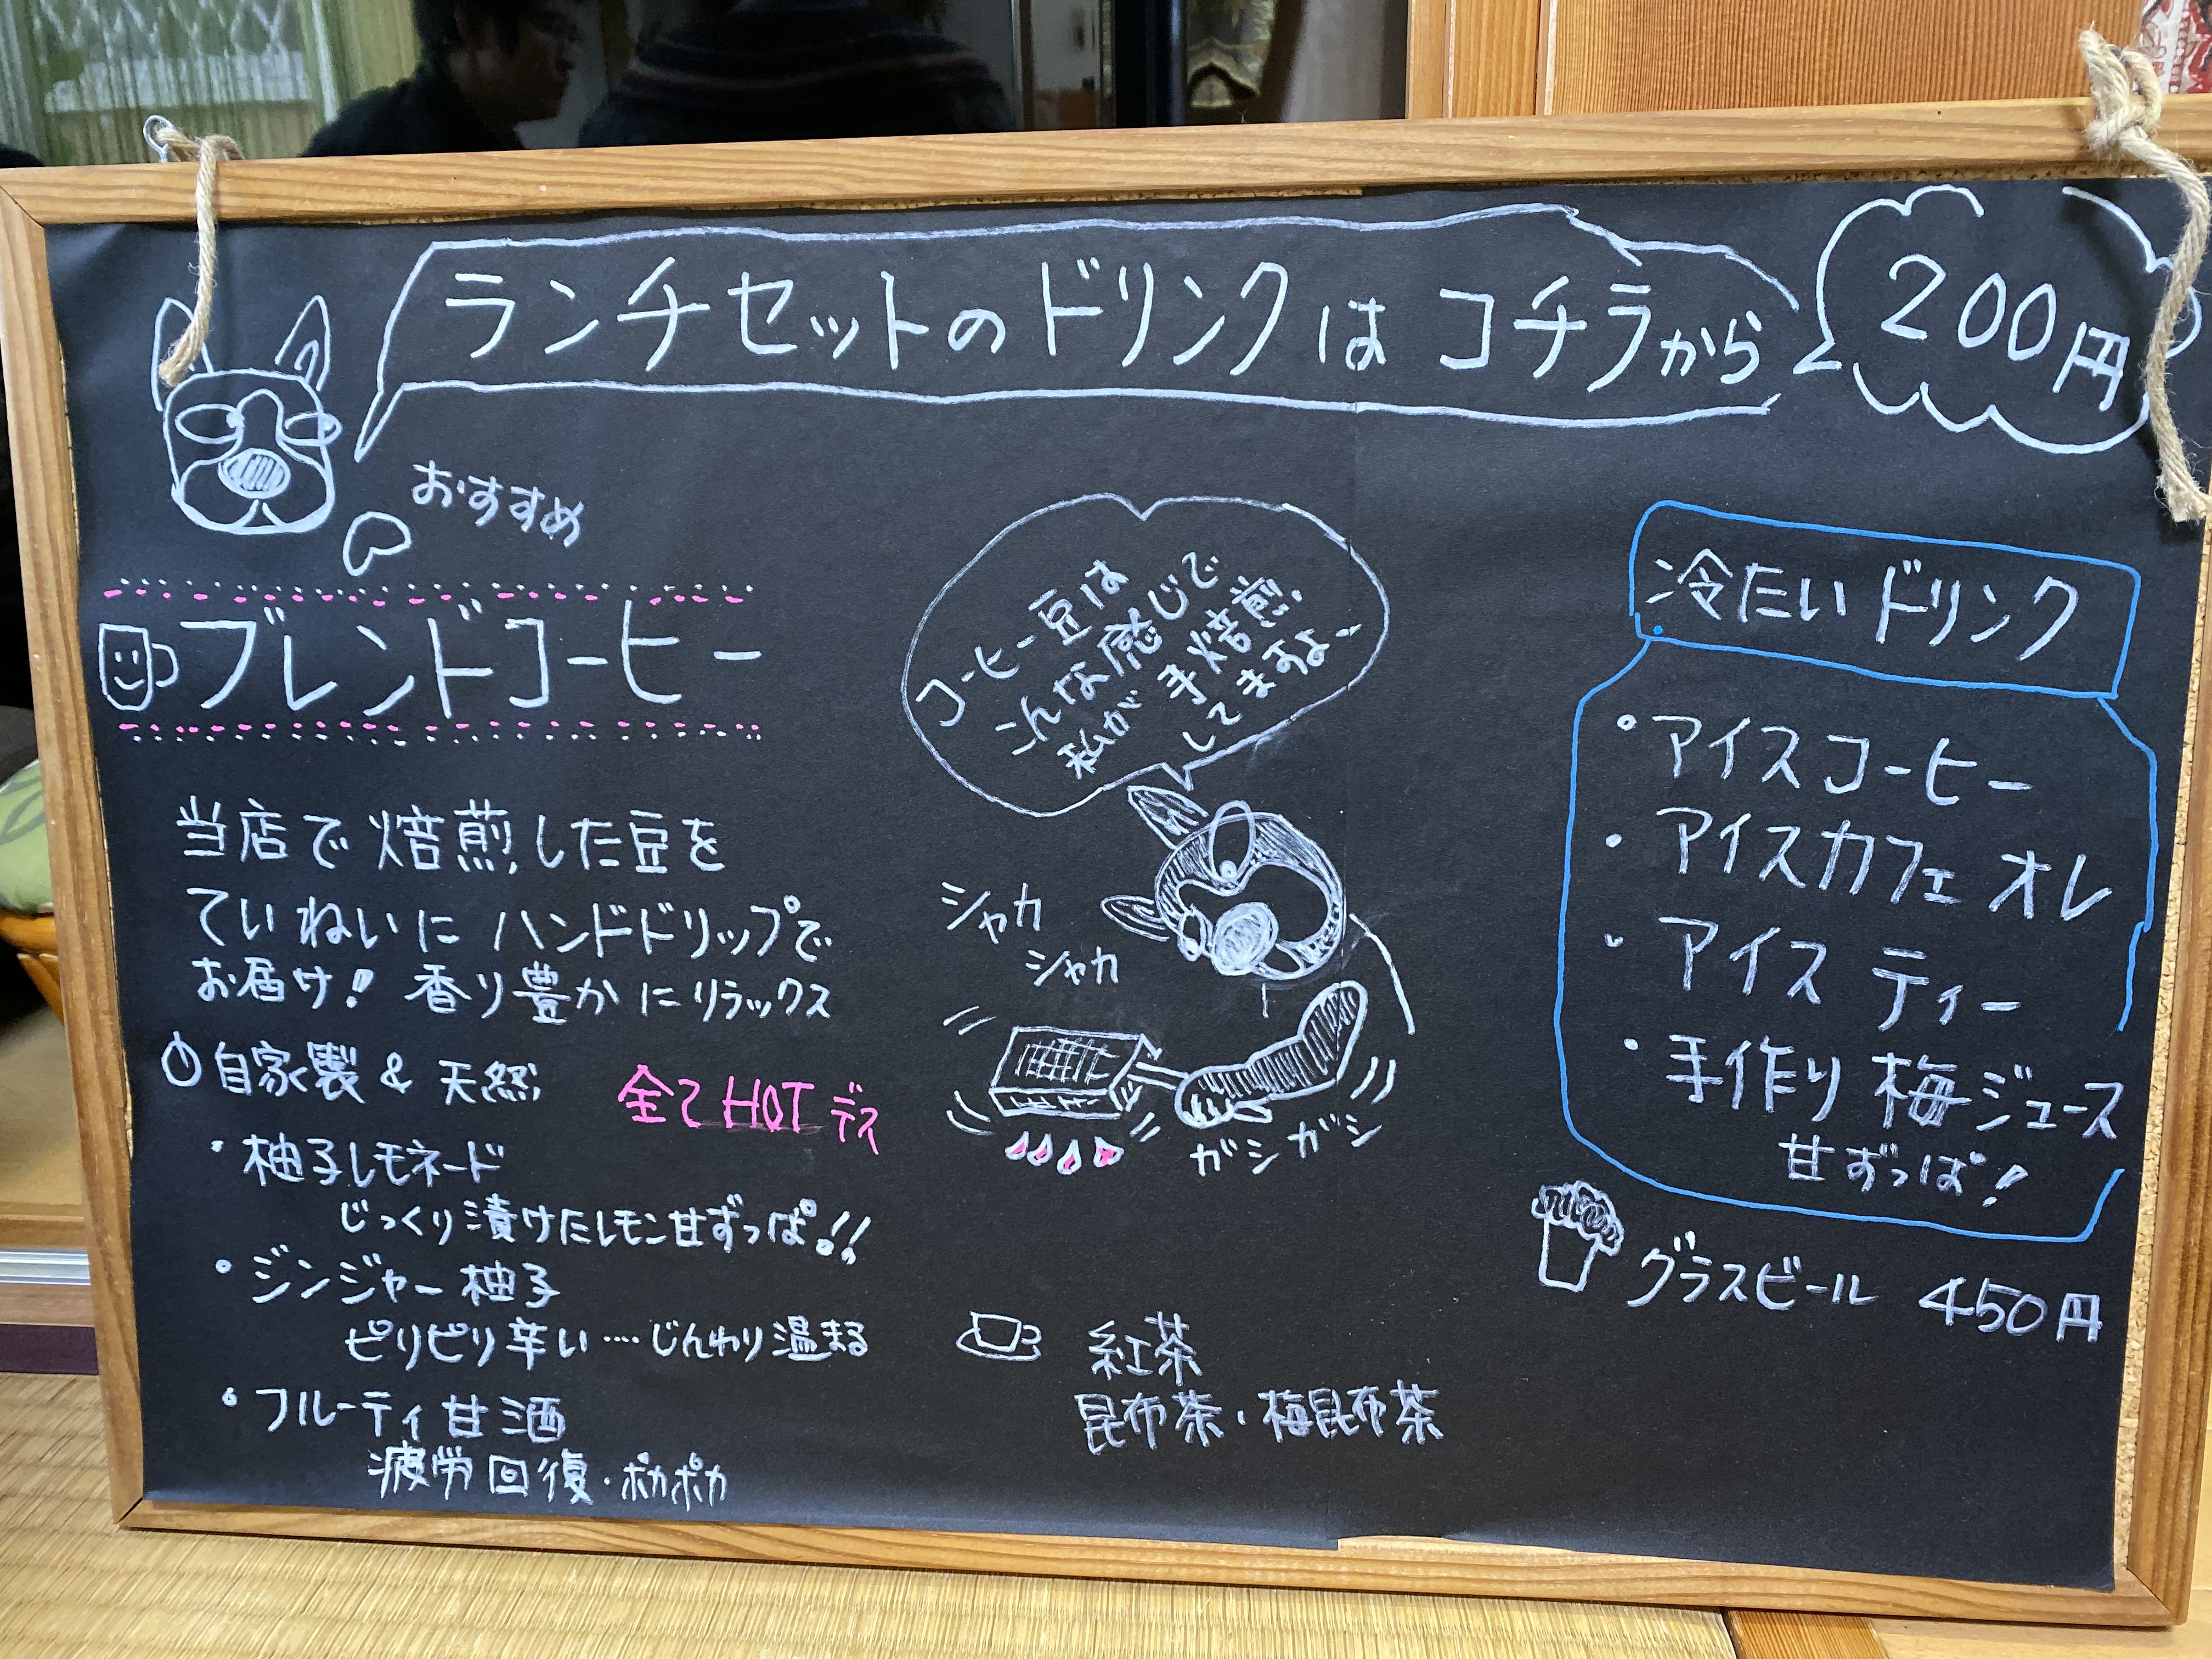 ランチセットのドリンクは コチラから
200円
おすすめ
ブレンドコーヒー
当店で焙煎した豆を
ていねいに ハンドドリップで
お届け! 香り豊かにリラックス
自家製 & 天然
全てHOTデス
・柚子レモネード
じっくり漬けたレモン甘ずっぱ!!
・ジンジャー柚子
ピリピリ辛い…じんわり温まる
・フルーティ甘酒
疲労回復・ポカポカ
コーヒー豆は
こんな感じで
私が手焙煎
してますよー
シャカ
シャカ
ガシガシ
紅茶
昆布茶・梅昆布茶
冷たいドリンク
・アイスコーヒー
・アイスカフェオレ
・アイスティー
・手作り梅ジュース
甘ずっぱ!
グラスビール 450円